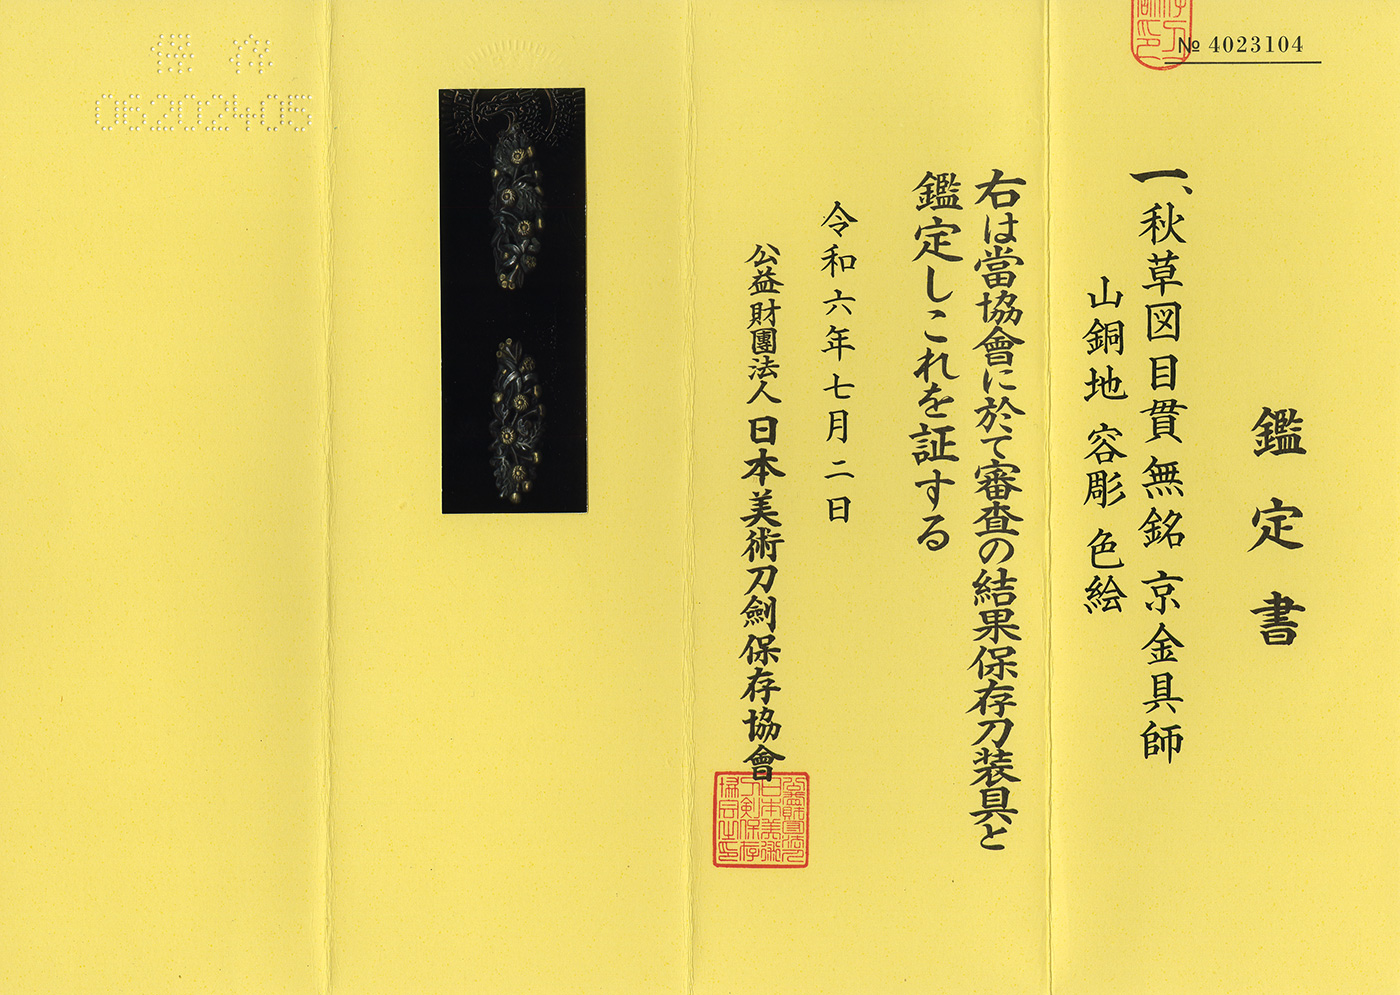 № 4023104
鑑定書
一、秋草図目貫 無銘 京金具師
山銅地 容彫 色絵
右は當協會に於て審査の結果保存刀装具と
鑑定しこれを証する
令和六年七月二日
公益財團法人 日本美術刀劍保存協會
保存
06202405